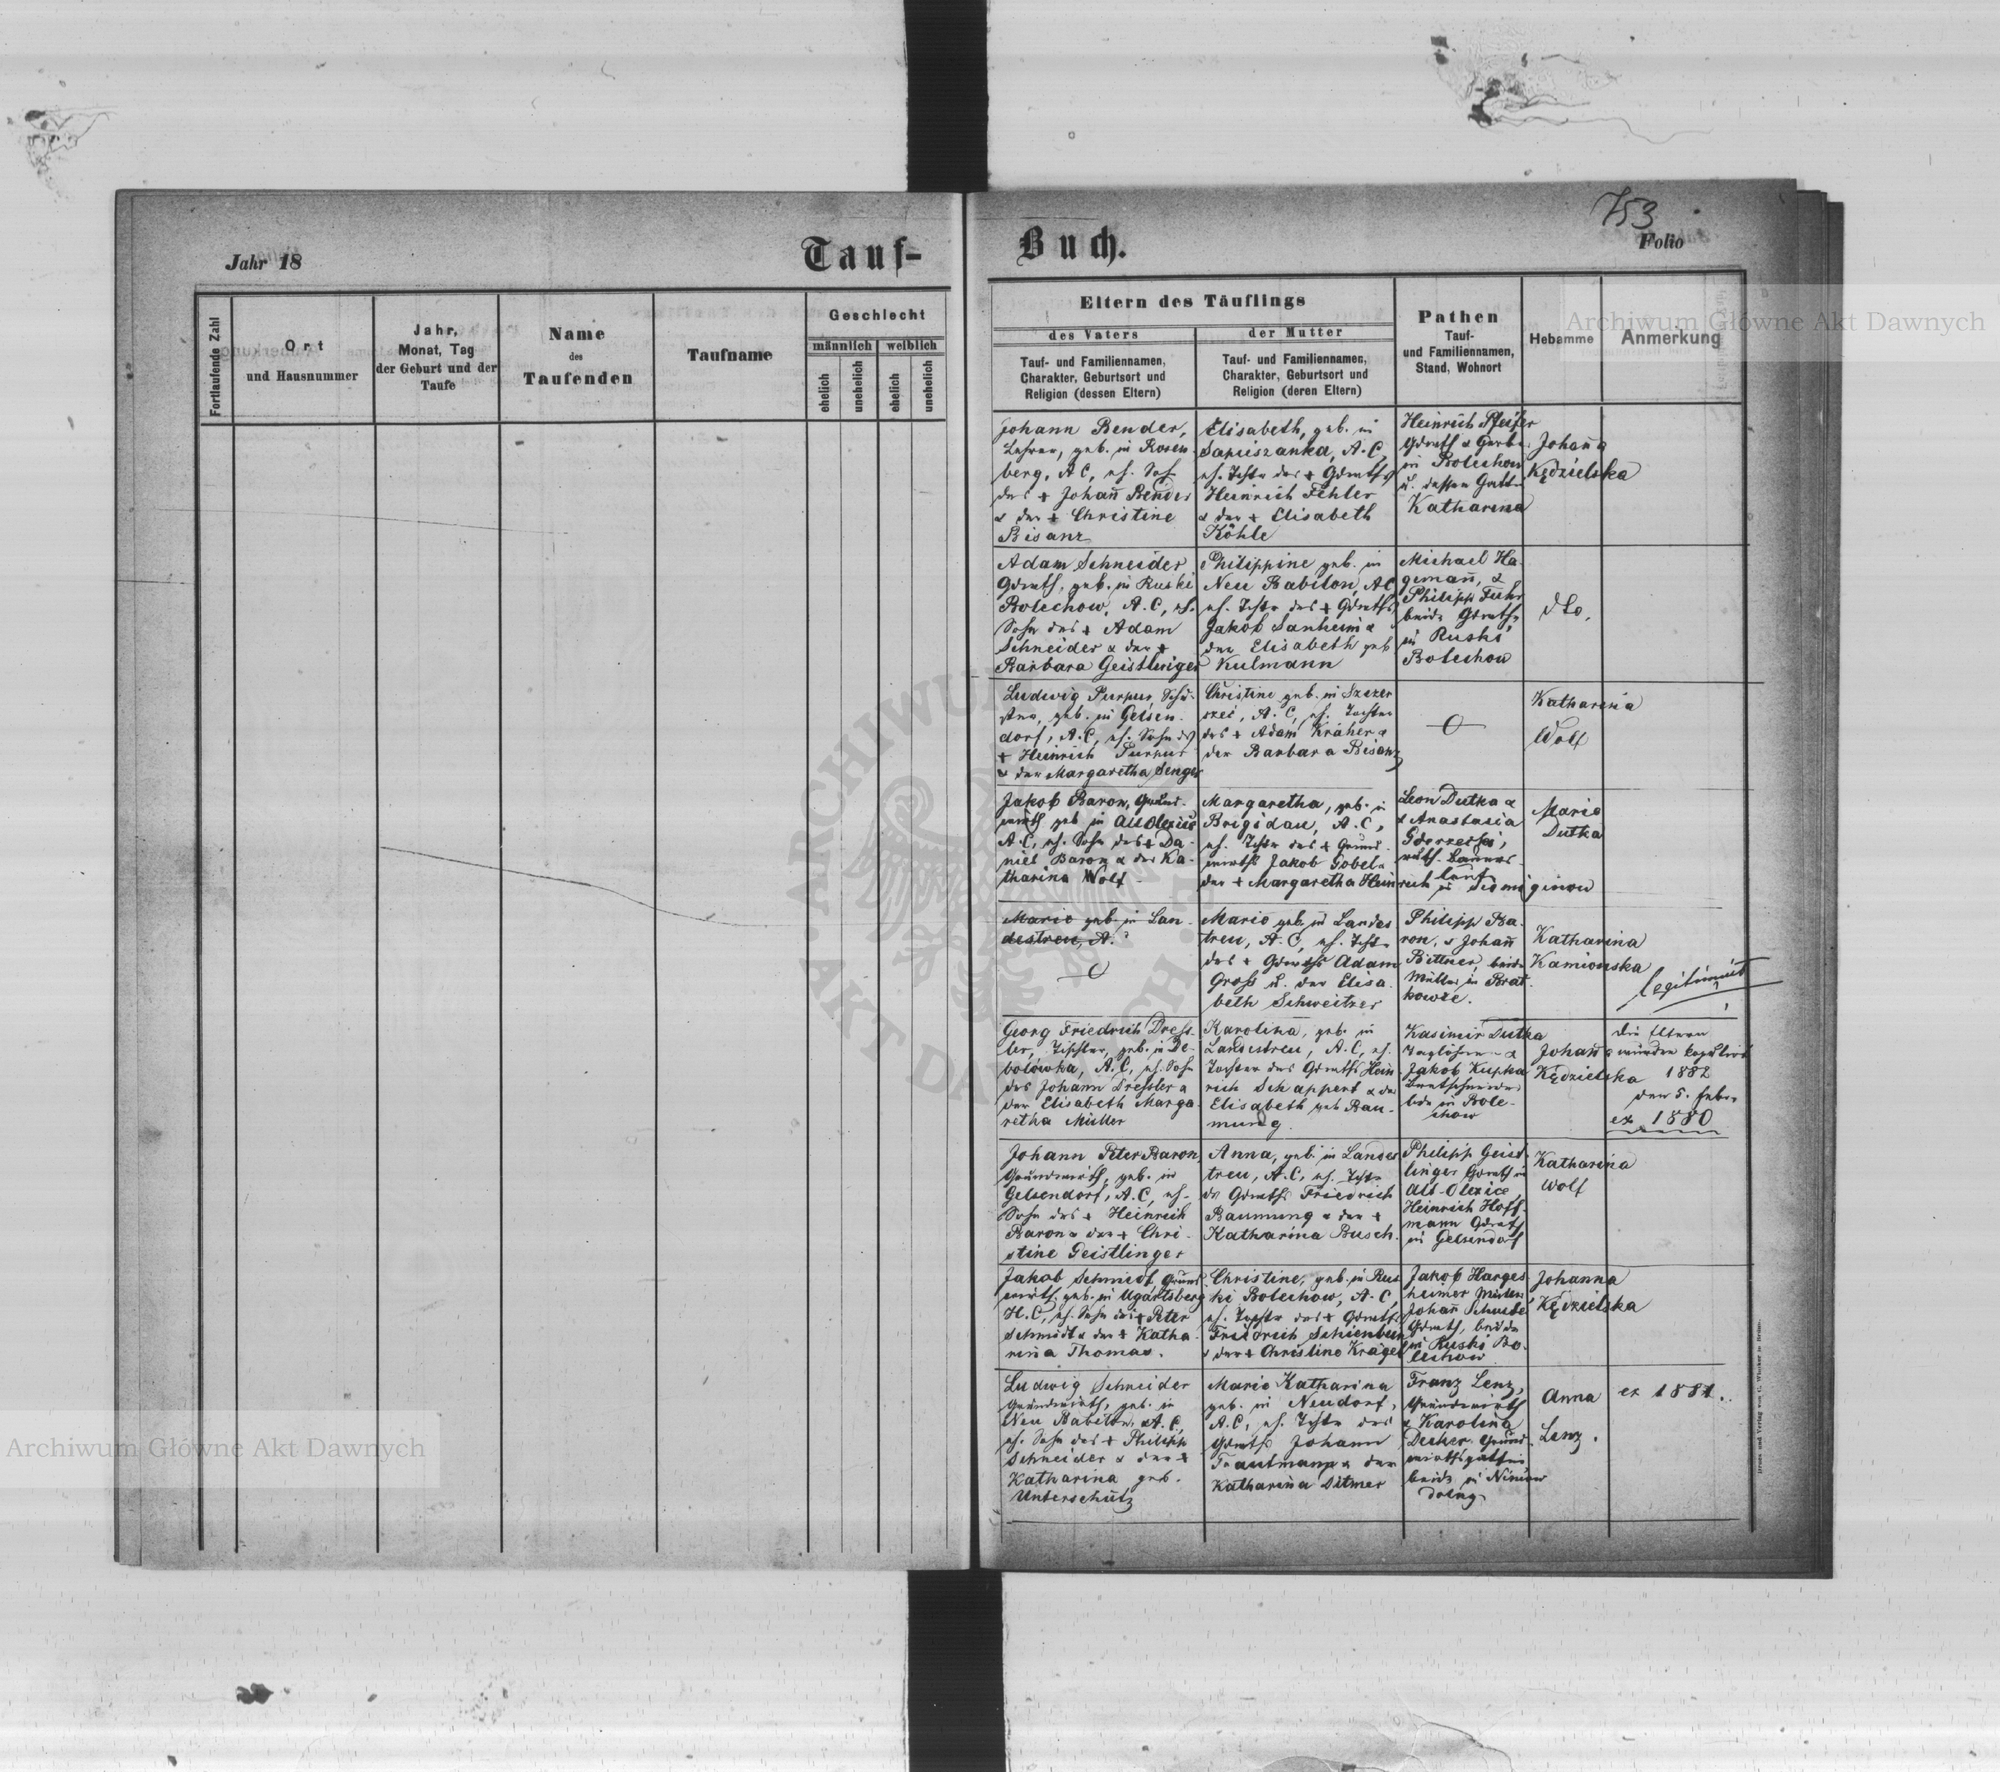 753
Jahr 18
Tauf-
Buch.
Folio
Fortlaufende Zahl
Ort
und Hausnummer
Jahr,
Monat, Tag
der Geburt und der
Taufe
Name
des
Taufenden
Taufname
Geschlecht
männlich
weiblich
ehelich
unehelich
ehelich
unehelich
Eltern des Täuflings
des Vaters
Tauf- und Familiennamen,
Charakter, Geburtsort und
Religion (dessen Eltern)
der Mutter
Tauf- und Familiennamen,
Charakter, Geburtsort und
Religion (deren Eltern)
Pathen
Tauf-
und Familiennamen,
Stand, Wohnort
Hebamme
Anmerkung
Johann Bender,
Lehrer, geb. in Rosen-
berg, A.C, eh. Sohn
des + Johañ Bender
& der + Christine
Bisanz
Elisabeth, geb. in
Sapieszanka, A.C,
eh. Tchtr des + Gdrwths
Heinrich Fehler
& der + Elisabeth
Köhle
Heinrich Pfeifer
Gdrwth & Gerber
in Bolechow
u. dessen Gattin
Katharina
Johanna
Kędzielska
Adam Schneider
Gdrwth, geb. in Ruski
Bolechow, A.C, eh.
Sohn des + Adam
Schneider & der +
Barbara Geistlinger
Philippine geb. in
Neu Babilon, AC
eh. Tchtr des + Gdrwths
Jakob Sanheim &
der Elisabeth geb
Kulmann
Michael Ha-
gemañ, &
Philipp Fuhr
beide Gdrwthe
in Ruski
Bolechow
dto.
Ludwig Purpur, Schu-
ster, geb. in Gelsen-
dorf, A.C, eh. Sohn des
+ Heinrich Purpur
& der Margaretha Senger
Christine geb. in Szczer
rzec, A.C, eh. Tochter
des + Adam Kräher &
der Barbara Bisanz
Katharina
Wolf
Jakob Baron, Grund-
wirth geb in Alt Olexice
A.C, eh. Sohn des + Da-
niel Baron & der Ka-
tharina Wolf
Margaretha, geb. in
Brigidau, A.C,
eh. Tchtr des + Grund-
wirths Jakob Göbel &
der + Margaretha Heinrich
Leon Dutka &
& Anastasia
in Siemiginow
Maria
Dutka
Maria geb. in Lan-
destreu, A.
Maria geb. in Landes
treu, A.C, eh. Tchtr
des + Gdrwths Adam
Gross u. der Elisa-
beth Schweitzer
Philipp Ba-
ron, & Johañ
Bittner, beide
Müller in Brat-
kowce.
Katharina
Kamionska
legitimirt
Georg Friedrich Dress-
ler, Tischler, geb. in De-
bolowka, A.C, eh. Sohn
des Johann Dressler &
der Elisabeth Marga-
retha Müller
Karolina, geb. in
Landestreu, A.C, eh.
Tochter des Gdrwths Hein
rich Schappert & der
Elisabeth geb Bau-
mung.
Kasimir Dutka
Taglöhner &
Jakob Kupka
beide in Bole-
chow
Johañ a
Kędzielska
Die Eltern
wurden kopulirt
1882
den 5. Febr.
ex 1880
Johann Peter Baron
Grundwirth, geb. in
Gelsendorf, A.C, eh-
Sohn des + Heinrich
Baron & der + Chri-
stine Geistlinger
Anna, geb. in Landes
treu, A.C, eh. Tchtr
ds Gdrwths Friedrich
Baumung & der +
Katharina Busch.
Philipp Geist-
linger Gdrwth in
Alt-Olexice,
Heinrich Hoff-
mann Gdrwth
in Gelsendorf
Katharina
Wolf
Jakob Schmidt, Grund
wirth. geb. in Ugartsberg
H.C, eh. Sohn des + Peter
Schmidt & der + Katha-
rina Thomas.
Christine, geb. in Rus
ki Bolechow, A.C,
eh. Tochtr des + Gdrwths
Friedrich Schienbein
& der + Christine Krägel
Jakob Harges
heimer
Johañ Schuste
Gdrwth, beide
in Ruski Bo-
lechow
Johanna
Kędzielska
Ludwig Schneider
Grundwirth, geb. in
Neu Babilon, A.C,
eh. Sohn des + Philipp
Schneider & der +
Katharina geb.
Unterschütz
Maria Katharina
geb. in Neudorf,
A.C, eh. Tchtr des
Gdrwths Johann
Trautmann & der
Katharina Ditmer
Franz Lenz,
Grundwirth
& Karolina
Decker Grund-
wirthsgattin
beide in Niniow
dolny
Anna
Lenz.
ex 1881.
Druck und Verlag von C. Winiker in Brünn.
Archiwum Główne Akt Dawnych
Archiwum Główne Akt Dawnych